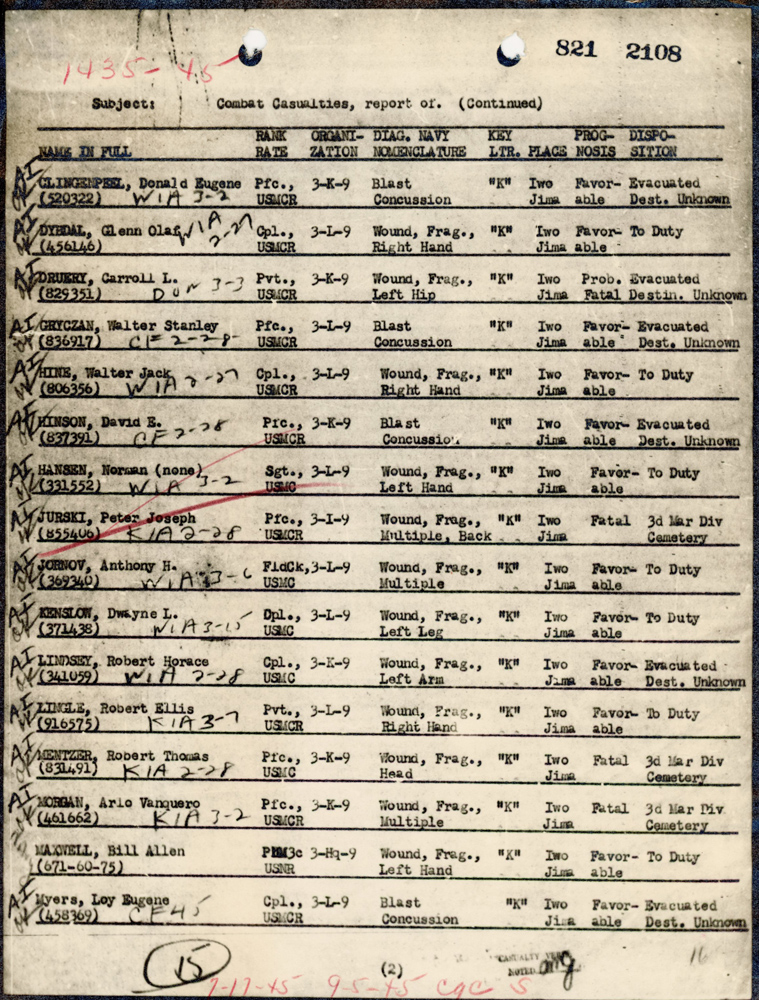 821 2108
1435-45
Subject: Combat Casualties, report of. (Continued)
RANK ORGANI- DIAG. NAVY KEY PROG- DISPO-
NAME IN FULL RATE ZATION NOMENCLATURE LTR. PLACE NOSIS SITION
AI CLINGENPEEL, Donald Eugene Pfc., 3-K-9 Blast "K" Iwo Favor- Evacuated
(520322) WIA 3-2 USMCR Concussion Jima able Dest. Unknown
AI DYBDAL, Glenn Olaf WIA 2-27 Cpl., 3-L-9 Wound, Frag., "K" Iwo Favor- To Duty
(456146) USMCR Right Hand Jima able
AI DRUERY, Carroll L. Pvt., 3-K-9 Wound, Frag., "K" Iwo Prob. Evacuated
(829351) DOW 3-3 USMCR Left Hip Jima Fatal Destin. Unknown
AI GRYCZAN, Walter Stanley Pfc., 3-I-9 Blast "K" Iwo Favor- Evacuated
(836917) CF 2-28 USMCR Concussion Jima able Dest. Unknown
AI HINE, Walter Jack Cpl., 3-L-9 Wound, Frag., "K" Iwo Favor- To Duty
(806356) WIA 2-27 USMCR Right Hand Jima able
AI HINSON, David E. Pfc., 3-K-9 Blast "K" Iwo Favor- Evacuated
(837391) CF 2-28 USMCR Concussion Jima able Dest. Unknown
AI HANSEN, Norman (none) Sgt., 3-L-9 Wound, Frag., "K" Iwo Favor- To Duty
(331552) WIA 3-2 USMC Left Hand Jima able
AI JURSKI, Peter Joseph Pfc., 3-I-9 Wound, Frag., "K" Iwo Fatal 3d Mar Div
(855406) KIA 2-28 USMCR Multiple, Back Jima Cemetery
AI JORNOV, Anthony H. FldCk, 3-L-9 Wound, Frag., "K" Iwo Favor- To Duty
(369340) WIA 3-6 USMC Multiple Jima able
AI KENSLOW, Dwayne L. Cpl., 3-L-9 Wound, Frag., "K" Iwo Favor- To Duty
(371438) WIA 3-15 USMC Left Leg Jima able
AI LINDSEY, Robert Horace Cpl., 3-K-9 Wound, Frag., "K" Iwo Favor- Evacuated
(341059) WIA 2-28 USMC Left Arm Jima able Dest. Unknown
AI LINGLE, Robert Ellis Pvt., 3-L-9 Wound, Frag., "K" Iwo Favor- To Duty
(916575) KIA 3-7 USMCR Right Hand Jima able
AI MENTZER, Robert Thomas Pfc., 3-K-9 Wound, Frag., "K" Iwo Fatal 3d Mar Div
(831491) KIA 2-28 USMC Head Jima Cemetery
AI MORGAN, Arlo Vanquero Pfc., 3-K-9 Wound, Frag., "K" Iwo Fatal 3d Mar Div
(461662) KIA 3-2 USMCR Multiple Jima Cemetery
MAXWELL, Bill Allen PhM3c 3-Hq-9 Wound, Frag., "K" Iwo Favor- To Duty
(671-60-75) USNR Left Hand Jima able
AI Myers, Loy Eugene Cpl., 3-L-9 Blast "K" Iwo Favor- Evacuated
(458369) CF45 USMCR Concussion Jima able Dest. Unknown
15 (2) CASUALTY NOTED 16
7-17-45 9-5-45 CGC S